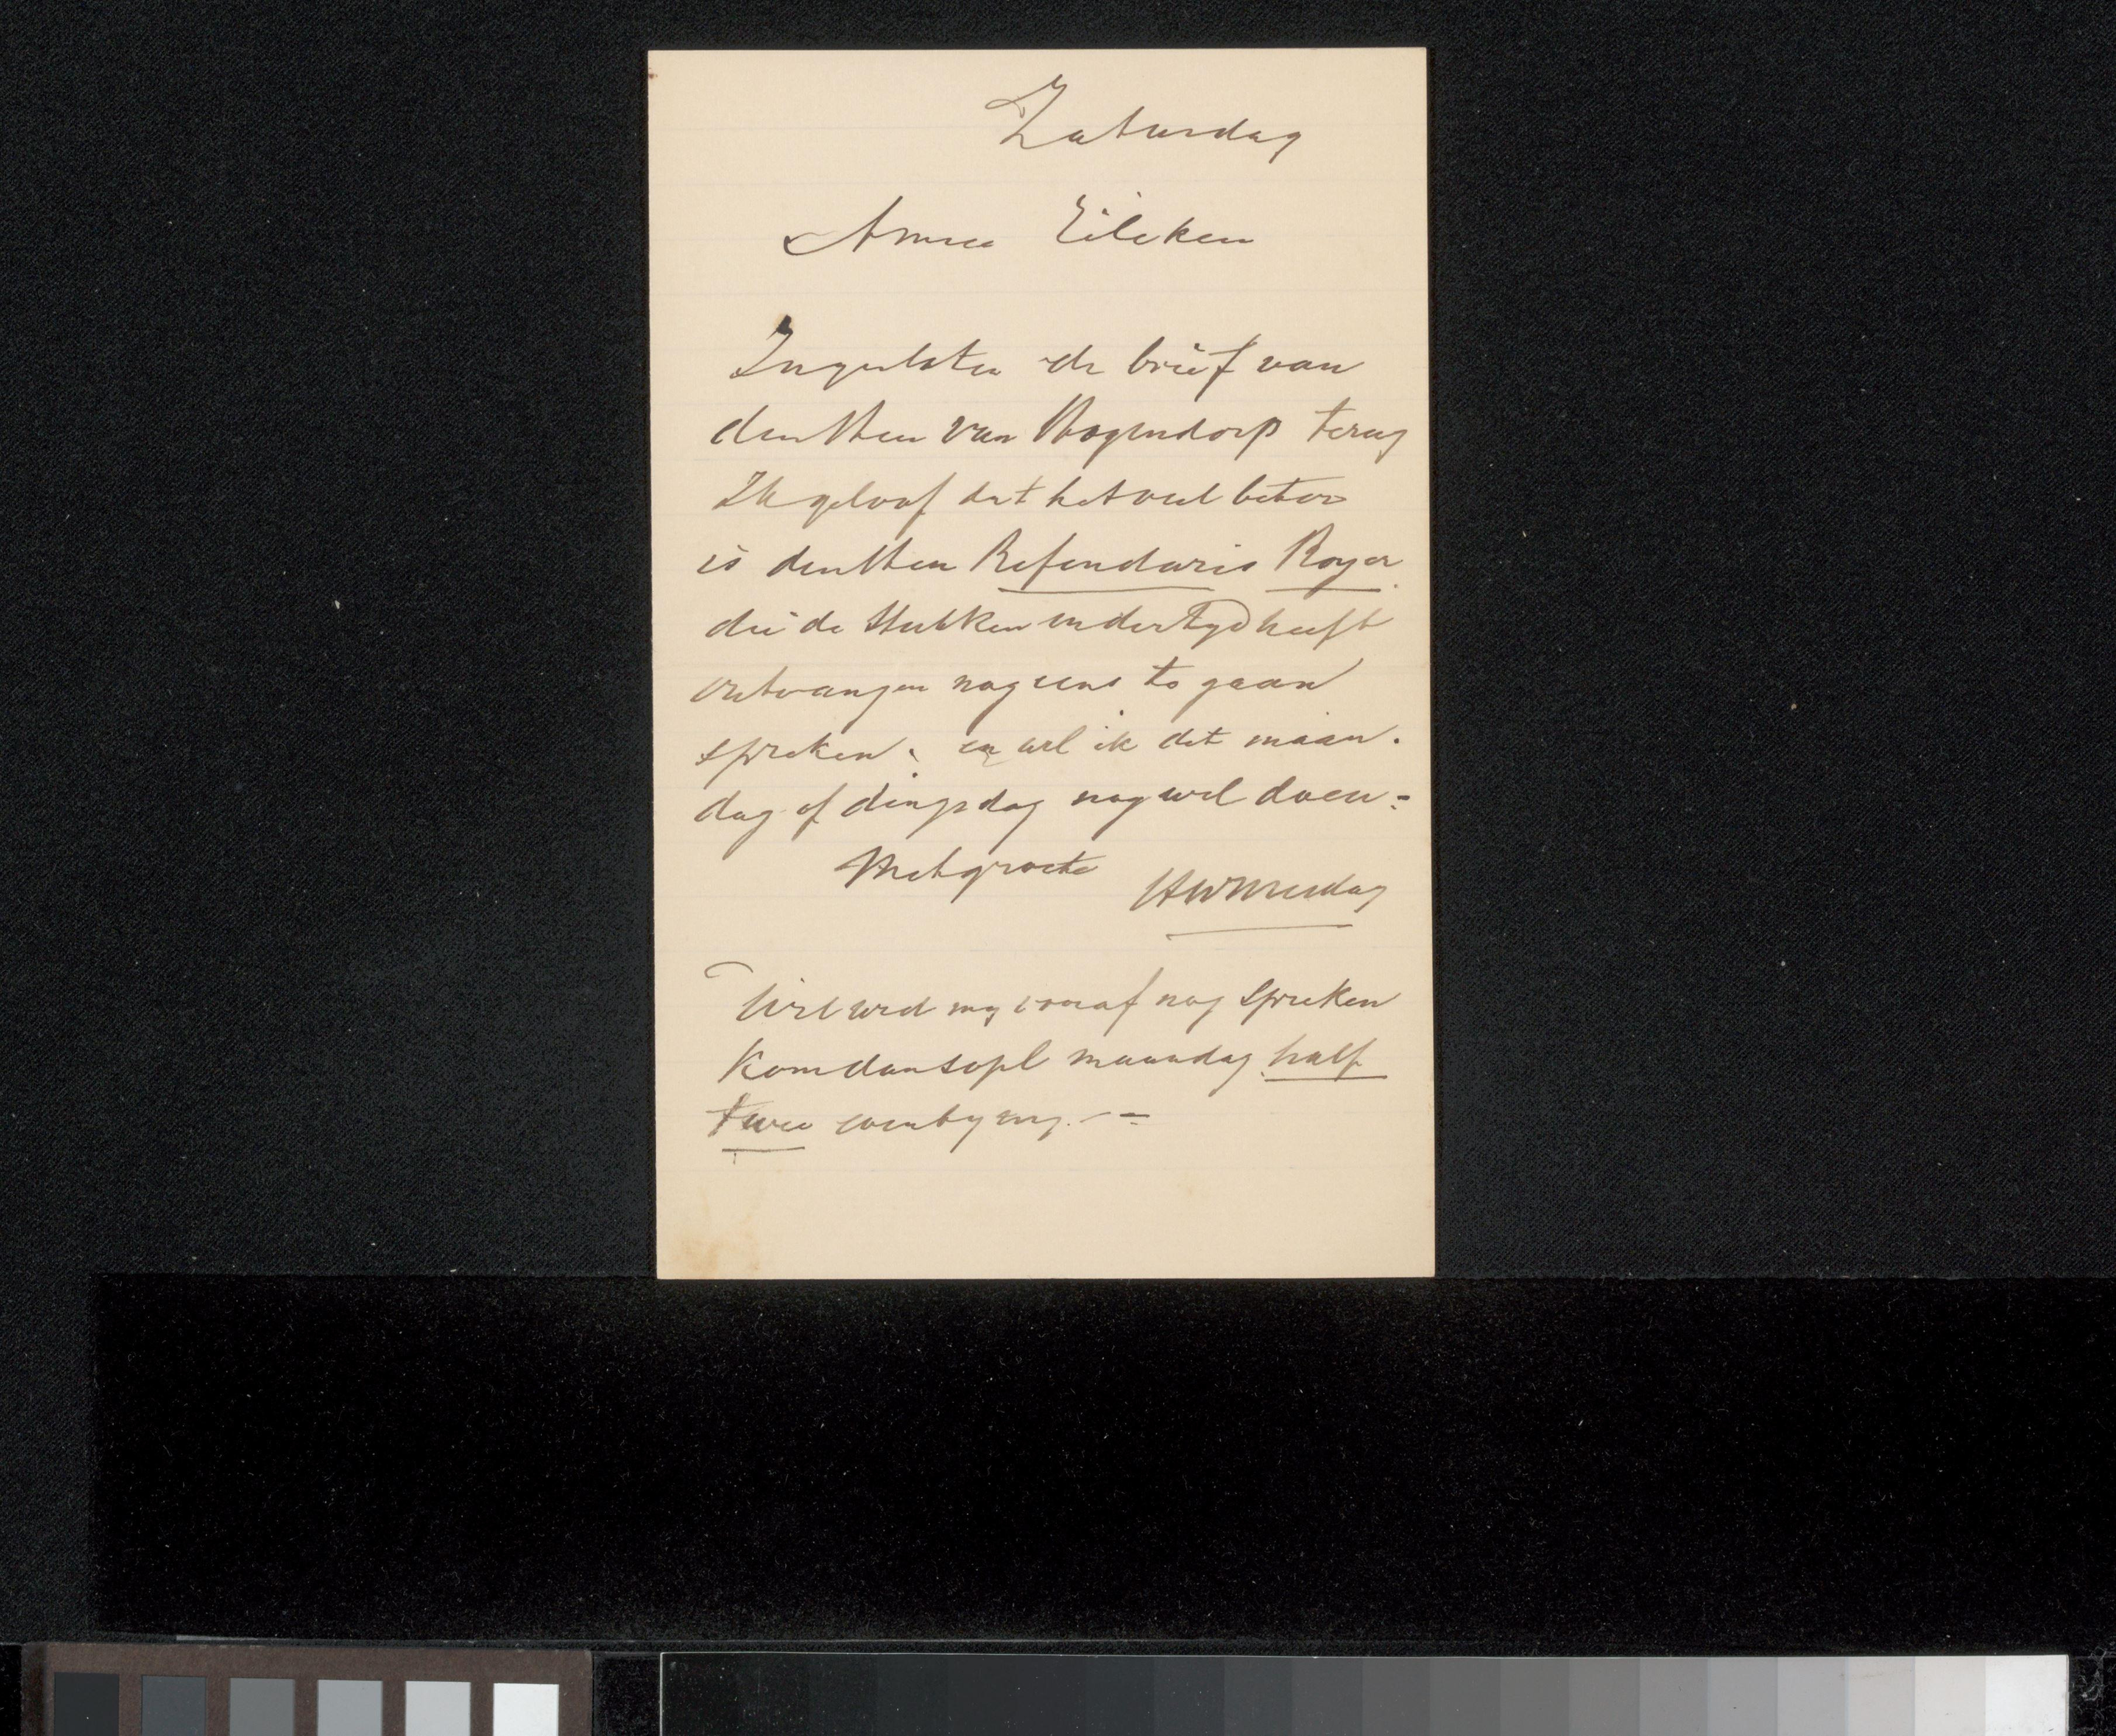 Zaturdag
Amice Eilcken
Ingesloten de brief van
den Heer van Hogendorp terug
Ik geloof dat het veel beter
is den Heer Refendaris Royer
die de stukken indertyd heeft
ontvangen nog eens te gaan
spreken. en wil ik dat maan-
dag of dingsdag nog wel doen=
Met groete HWMesdag
Wil u my vooraf nog spreken
Kom dan s.v.pl maandag half
twee even by my. -=